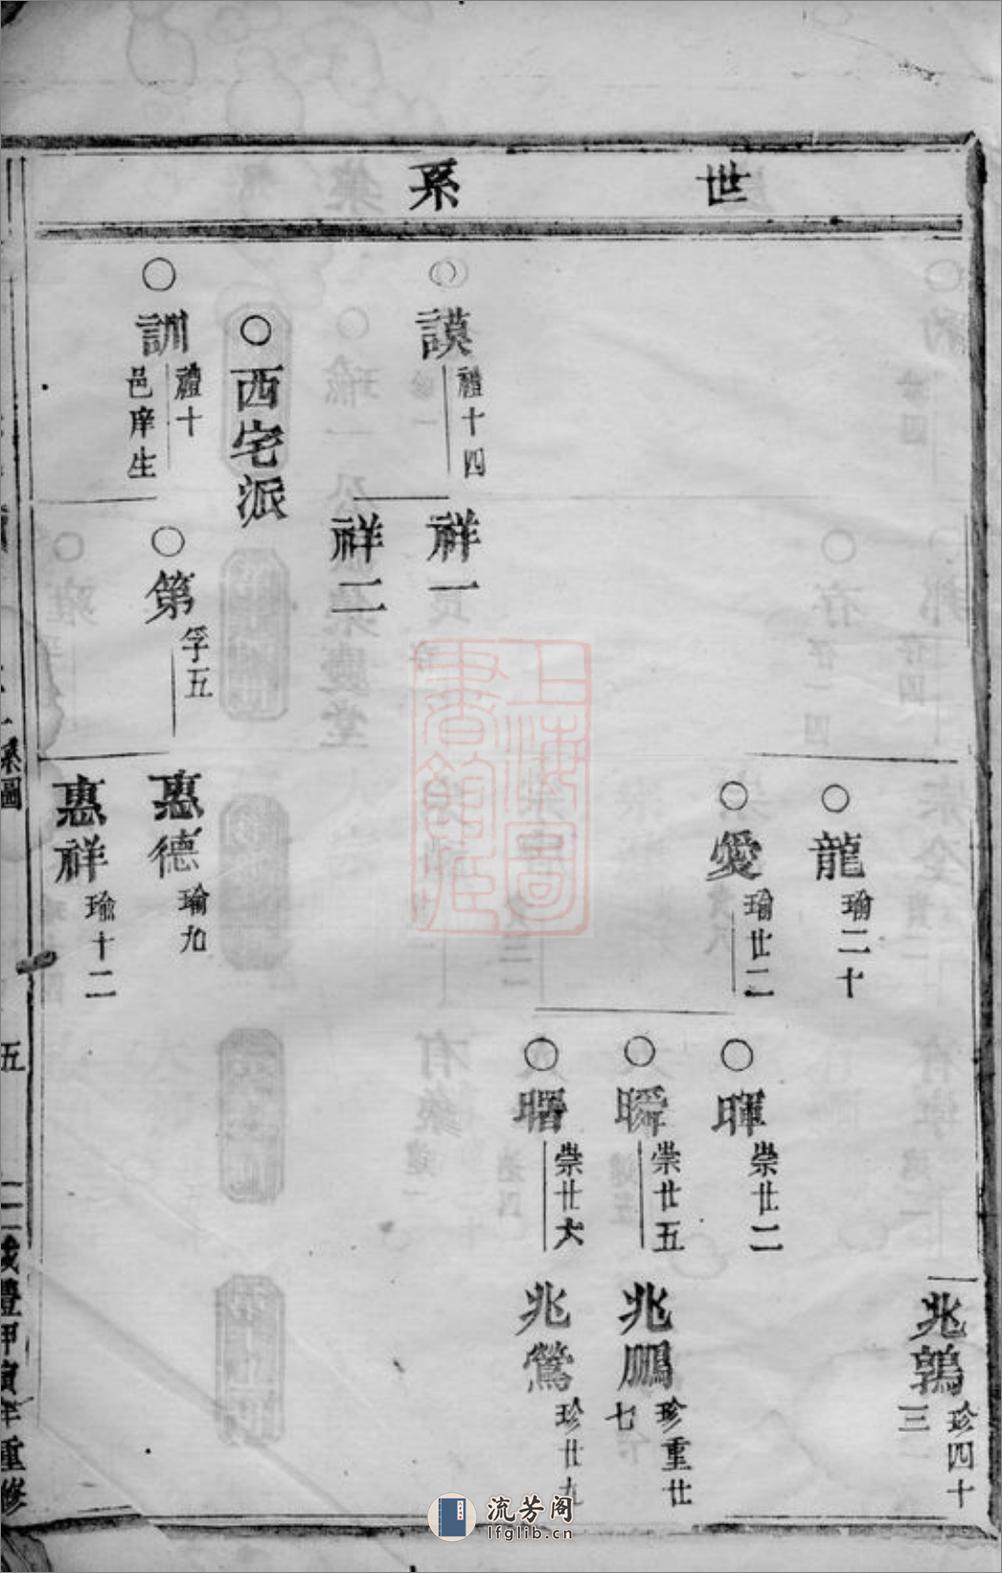 世系
兆鶉 珍四十三
龍 瑜二十
愛 瑜廿二
暉 崇廿二
瞬 崇廿五
兆鵬 珍重廿七
曙 崇廿六
兆鶯 珍廿九
謨 禮十四
祥一
祥二
西宅派
訓 禮十 邑庠生
第 孚五
惠德 瑜九
惠祥 瑜十二
系圖
五
咸豐甲寅年重修
上海圖書館藏
流芳阁
lfglib.cn